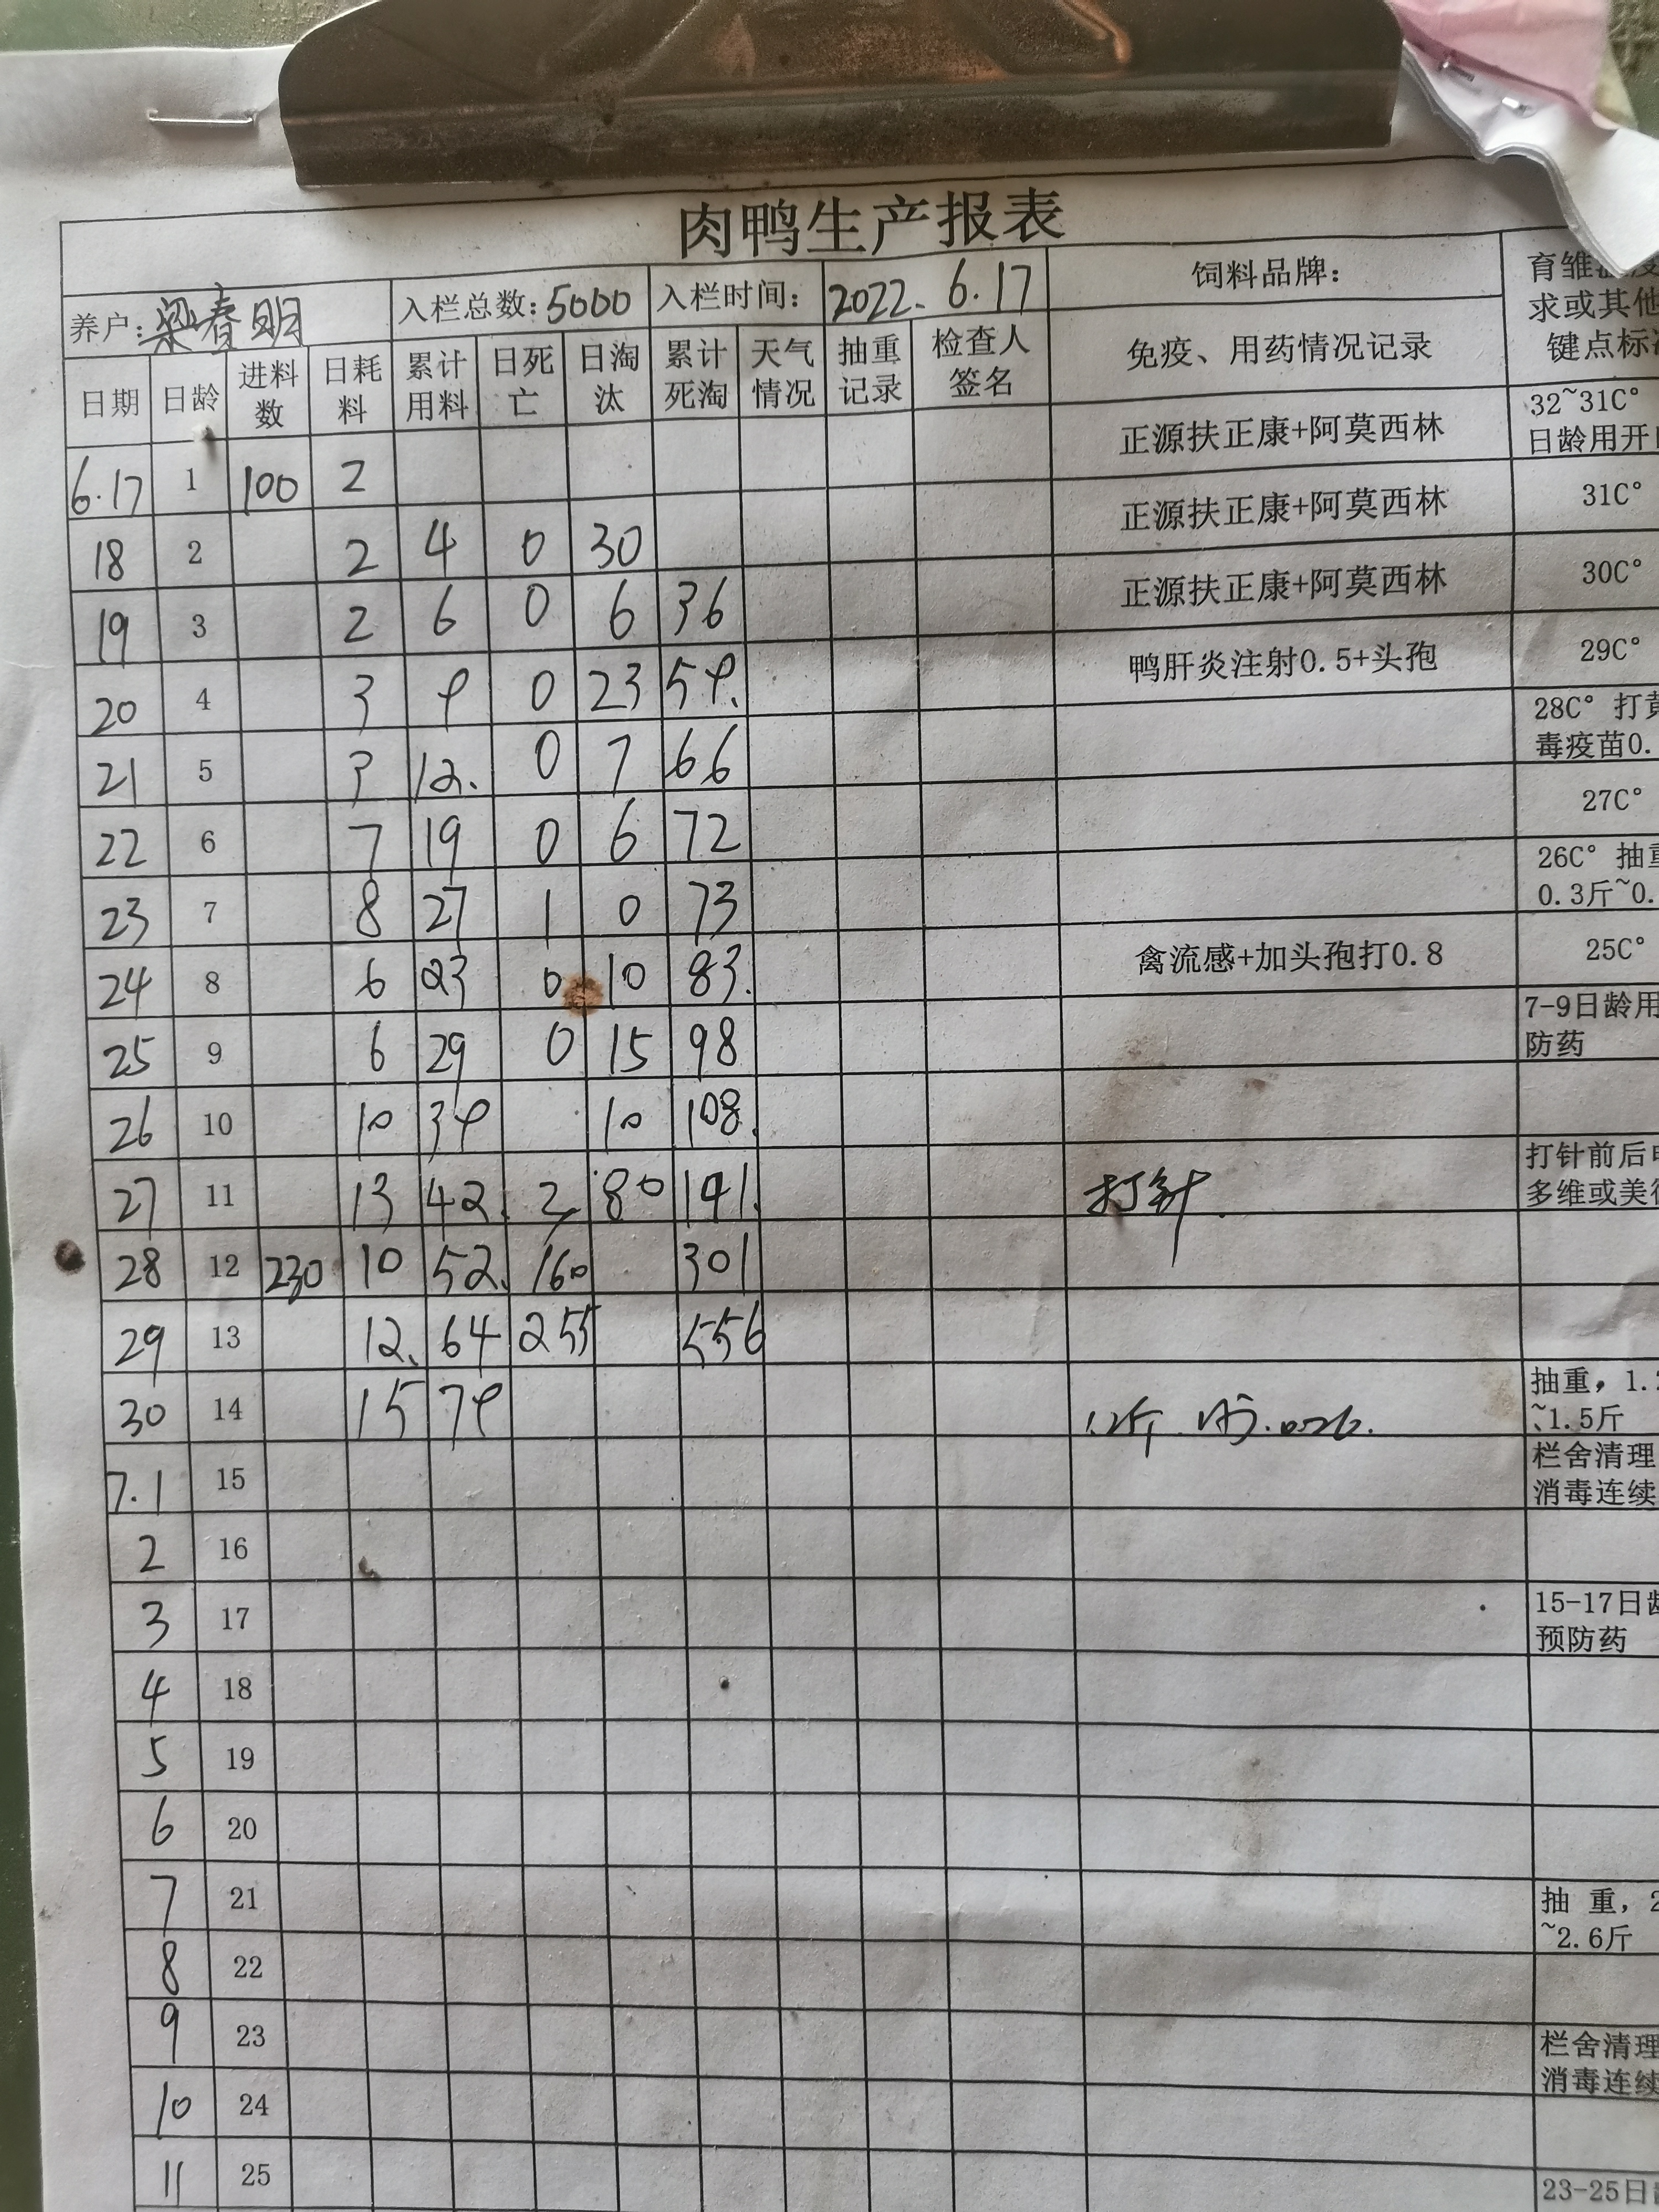 肉鸭生产报表
养户:梁春明 入栏总数:5000 入栏时间: 2022.6.17 饲料品牌: 育雏
求或其他
键点标
日期 日龄 进料数 日耗料 累计用料 日死亡 日淘汰 累计死淘 天气情况 抽重记录 检查人签名 免疫、用药情况记录
6.17 1 100 2 正源扶正康+阿莫西林 32~31C°
日龄用开
18 2 2 4 0 30 正源扶正康+阿莫西林 31C°
19 3 2 6 0 6 36 正源扶正康+阿莫西林 30C°
20 4 3 9 0 23 59. 鸭肝炎注射0.5+头孢 29C°
21 5 3 12. 0 7 66 28C° 打黄
毒疫苗0.
22 6 7 19 0 6 72 27C°
23 7 8 27 1 0 73 26C° 抽重
0.3斤~0.
24 8 6 23 0 10 83. 禽流感+加头孢打0.8 25C°
25 9 6 29 0 15 98 7-9日龄用
防药
26 10 10 39 10 108.
27 11 13 42. 2 80 191. 打针. 打针前后
多维或美
28 12 230 10 52. 160 301
29 13 12. 64 255 556
30 14 15 79 抽重, 1.
~1.5斤
7.1 15 栏舍清理
消毒连续
2 16
3 17 15-17日龄
预防药
4 18
5 19
6 20
7 21 抽 重, 2
~2.6斤
8 22
9 23 栏舍清理
消毒连续
10 24
11 25 23-25日龄